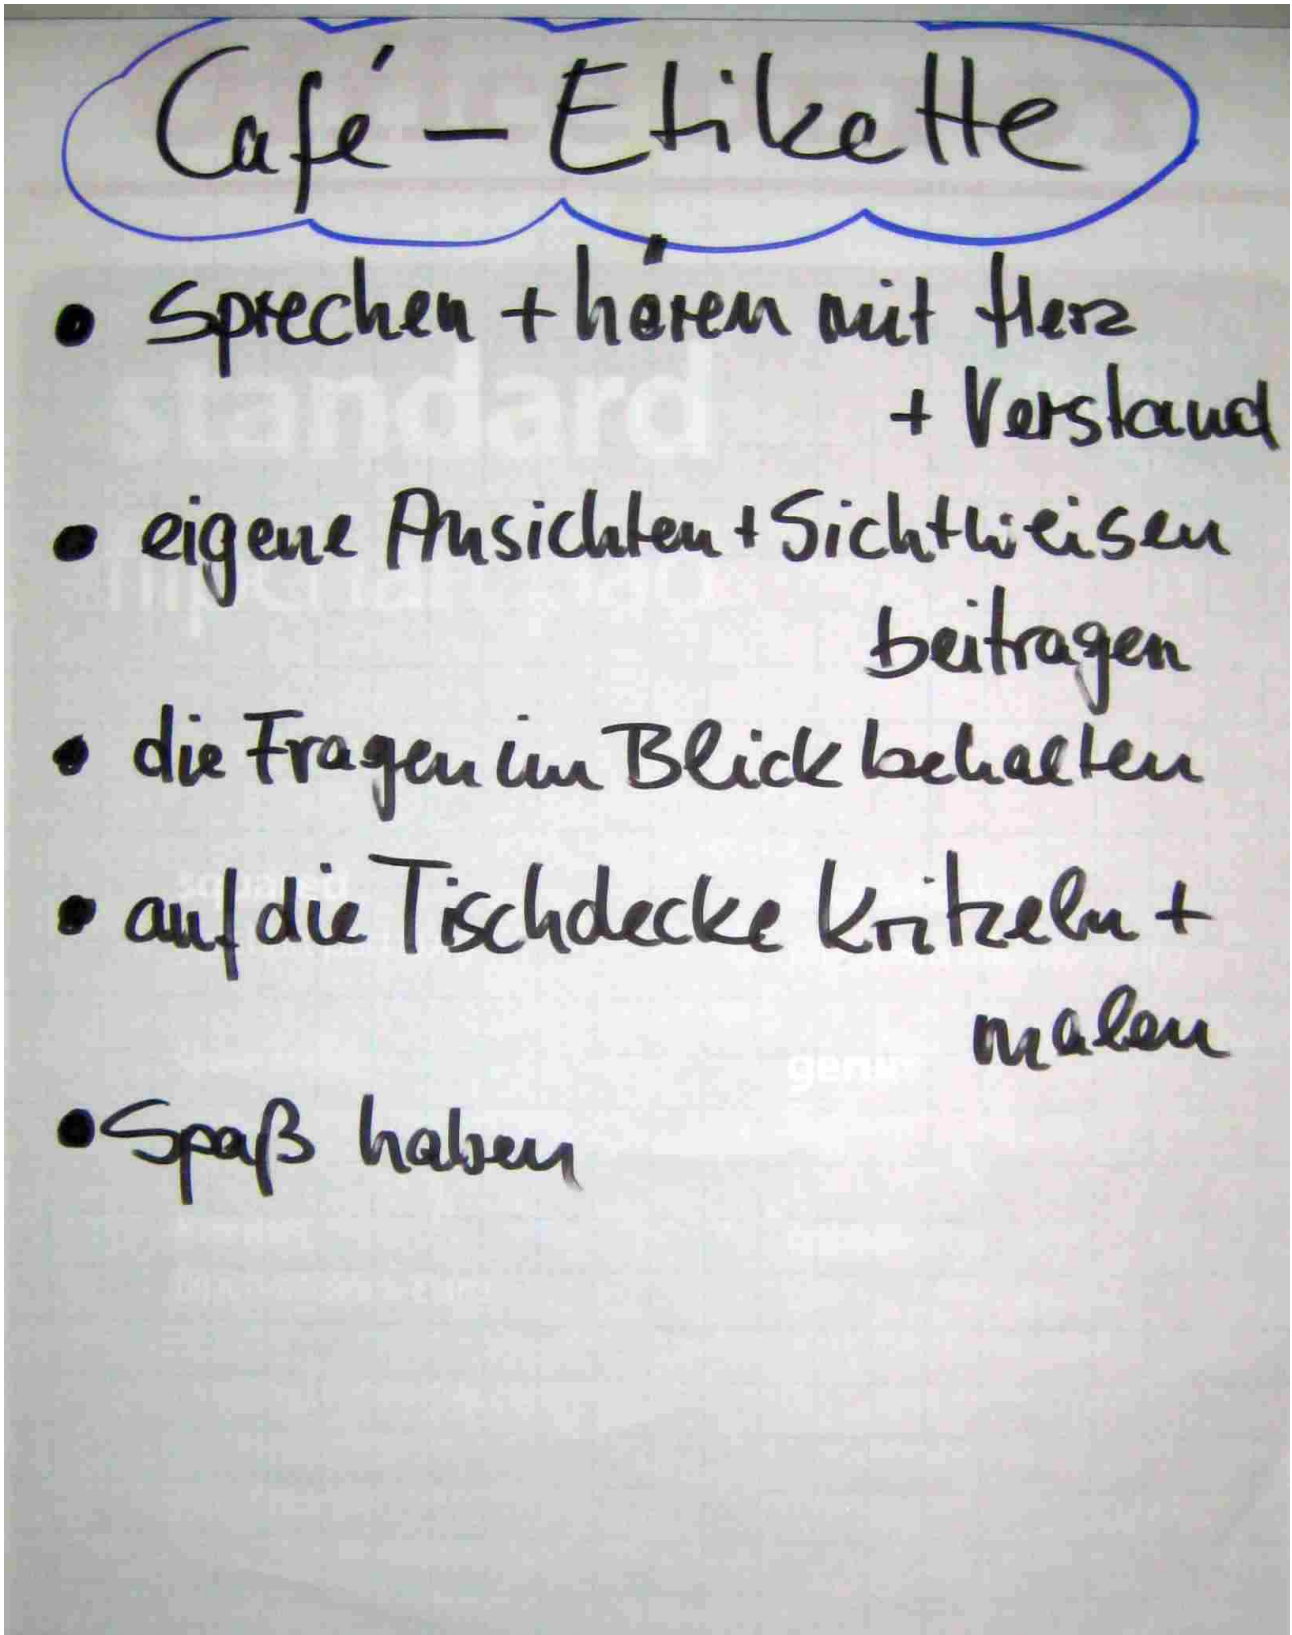 Café – Etikette
• Sprechen + hören mit Herz
+ Verstand
• eigene Ansichten + Sichtweisen
beitragen
• die Fragen im Blick behalten
• auf die Tischdecke kritzeln +
malen
• Spaß haben
standard
flipchart pad
squared